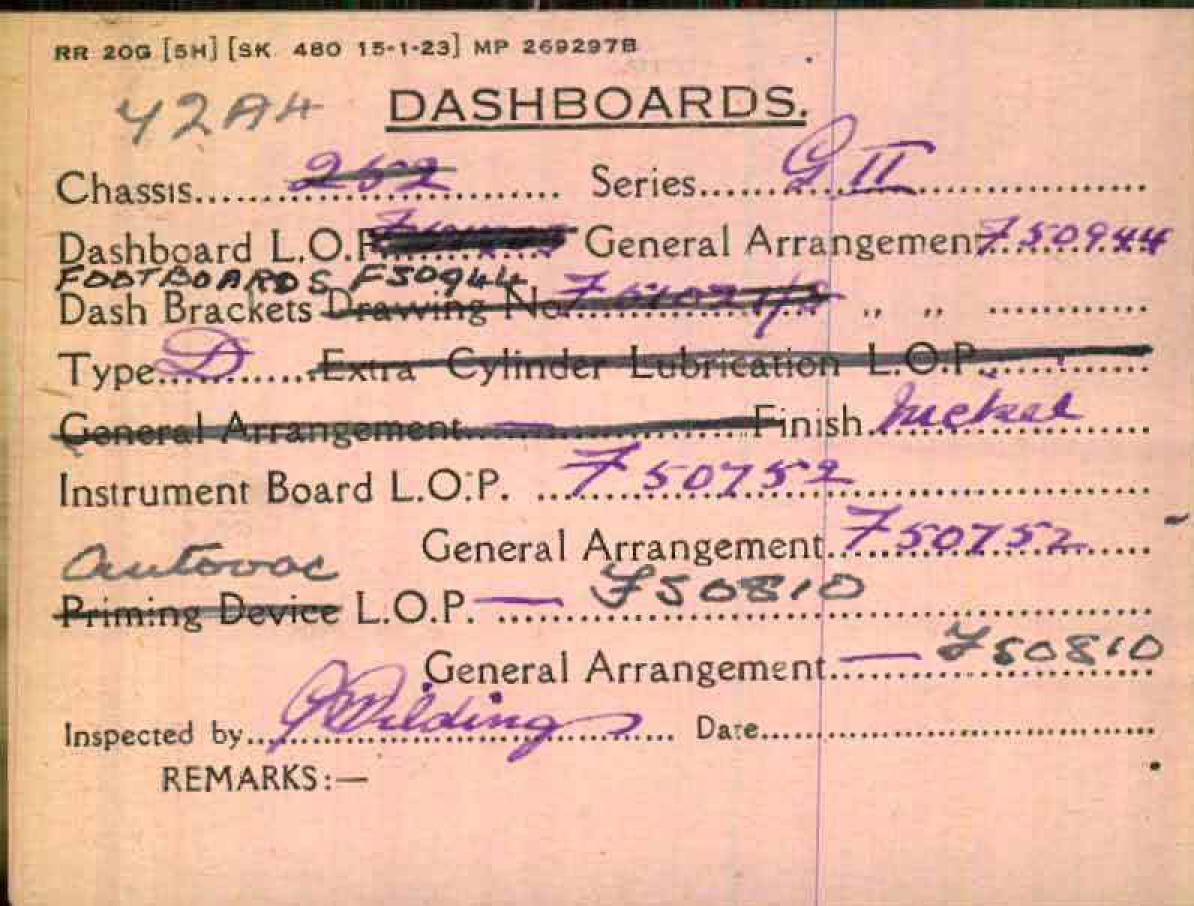 RR 20G [5H] [SK 480 15-1-23] MP 269297B
42A4 DASHBOARDS.
Chassis 252 Series G II
Dashboard L.O.P. General Arrangement F50944
FOOTBOARDS F50944
Dash Brackets Drawing No. „ „
Type D Extra Cylinder Lubrication L.O.P.
General Arrangement — Finish Nickel
Instrument Board L.O.P. F50752
General Arrangement F50752
Autovac
Priming Device L.O.P. — F50810
General Arrangement — F50810
Inspected by Wilding Date
REMARKS:—